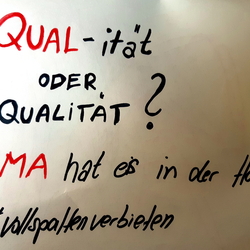 QUAL-ität
ODER
QUALITÄT?
MA hat es in der
vollspaltenverbieten